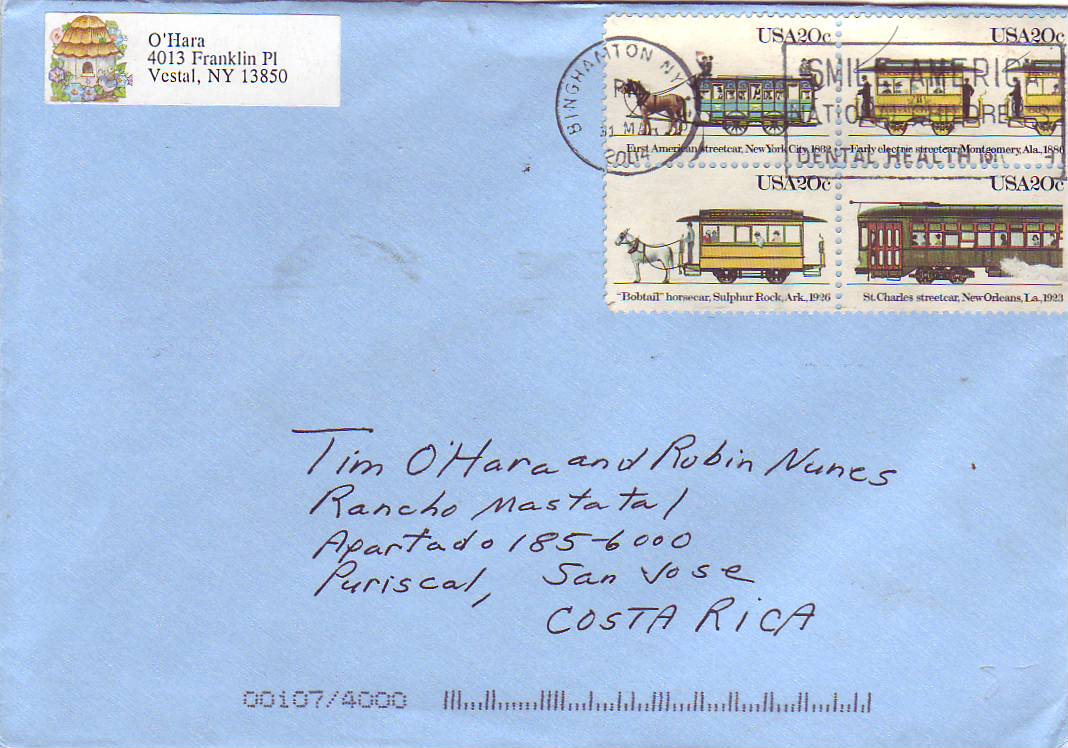 O'Hara
4013 Franklin Pl
Vestal, NY 13850
BINGHAMTON NY
PM
31 MAR
2004
SMILE AMERICA
DENTAL HEALTH
USA20c
First American streetcar, New York City, 1832
USA20c
Early electric streetcar, Montgomery, Ala., 1886
USA20c
"Bobtail" horsecar, Sulphur Rock, Ark., 1926
USA20c
St. Charles streetcar, New Orleans, La., 1923
Tim O'Hara and Robin Nunes
Rancho Mastatal
Apartado 185-6000
Puriscal, San Jose
COSTA RiCA
00107/4000